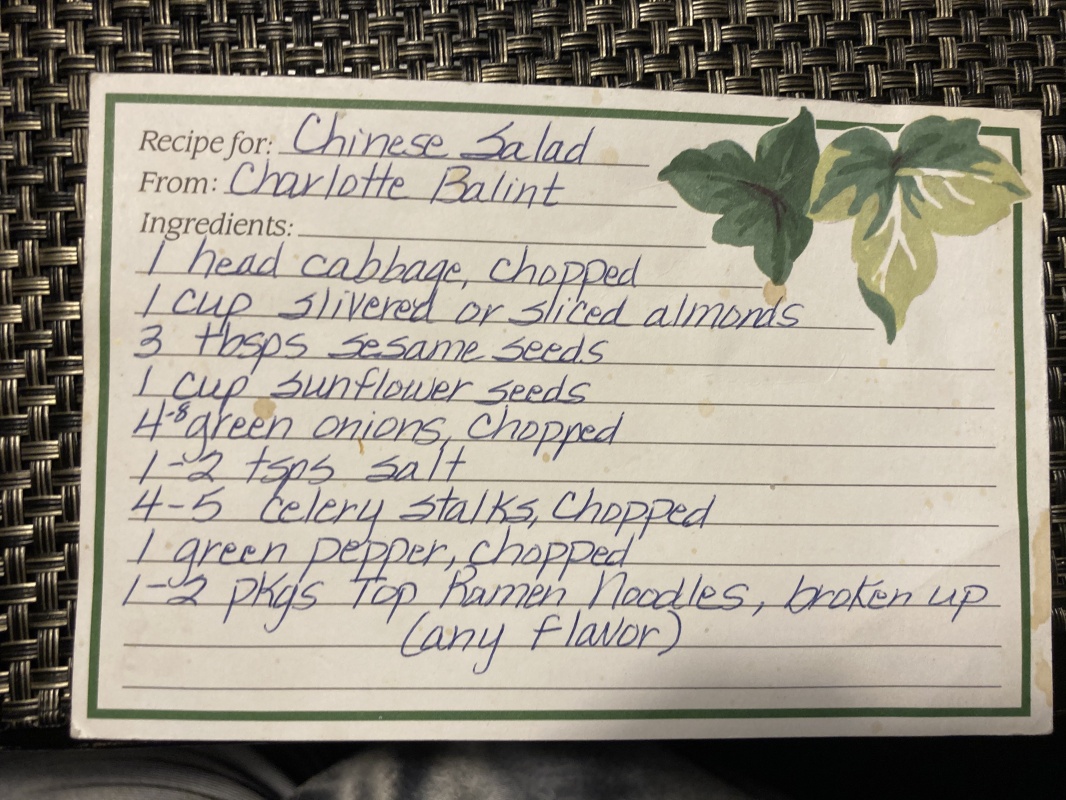 Recipe for: Chinese Salad
From: Charlotte Balint
Ingredients:
1 head cabbage, chopped
1 cup slivered or sliced almonds
3 tbsps sesame seeds
1 cup sunflower seeds
4-8 green onions, chopped
1-2 tsps salt
4-5 celery stalks, chopped
1 green pepper, chopped
1-2 pkgs Top Ramen Noodles, broken up
(any flavor)